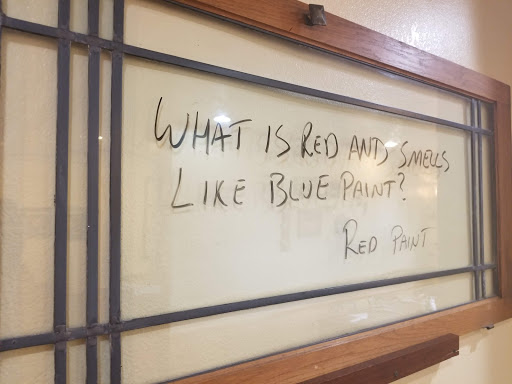 WHAT IS RED AND SMELLS
LIKE BLUE PAINT?
RED PAINT